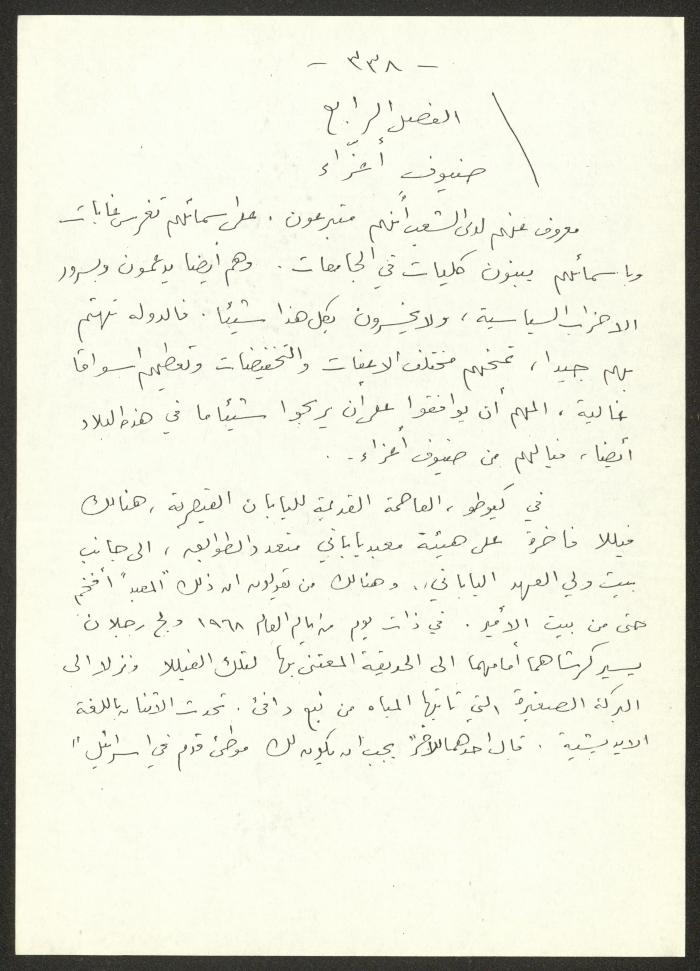 - ٣٣٨ -
الفصل الرابع
ضيوف أعزّاء
معروف عنهم لدى الشعب أنهم متبرعون. على اسمائهم تغرس غابات
وباسمائهم يبنون كليات في الجامعات. وهم أيضا يدعمون وبسرور
الاحزاب السياسية، ولا يخسرون بكل هذا شيئا. فالدوله تهتم
بهم جيدا، تمنحهم مختلف الاعفات والتخفيضات وتعطيهم اسواقا
غالية، المهم أن يوافقوا على أن يربحوا شيئا ما في هذه البلاد
أيضا، فيالهم من ضيوف أعزاء.
في كيوطو، العاصمة القديمة لليابان القيصرية، هنالك
فيللا فاخرة على هيئة معبد ياباني متعدد الطوابق، الى جانب
بيت ولي العهد الياباني. وهنالك من تقولون ان ذلك "المعبد" أفخم
حتى من بيت الأمير. في ذات يوم من أيام العام ١٩٦٨ ولج رجلان
يسير كرشاهما أمامهما الى الحديقة المعتنى بها لتلك الفيللا ونزلا الى
البركة الصغيرة التي تأتيها المياه من نبع دافئ. تحدث الاثنان باللغة
الايديشية. قال احدهما للآخر "يجب ان يكون لك موطئ قدم في اسرائيل"